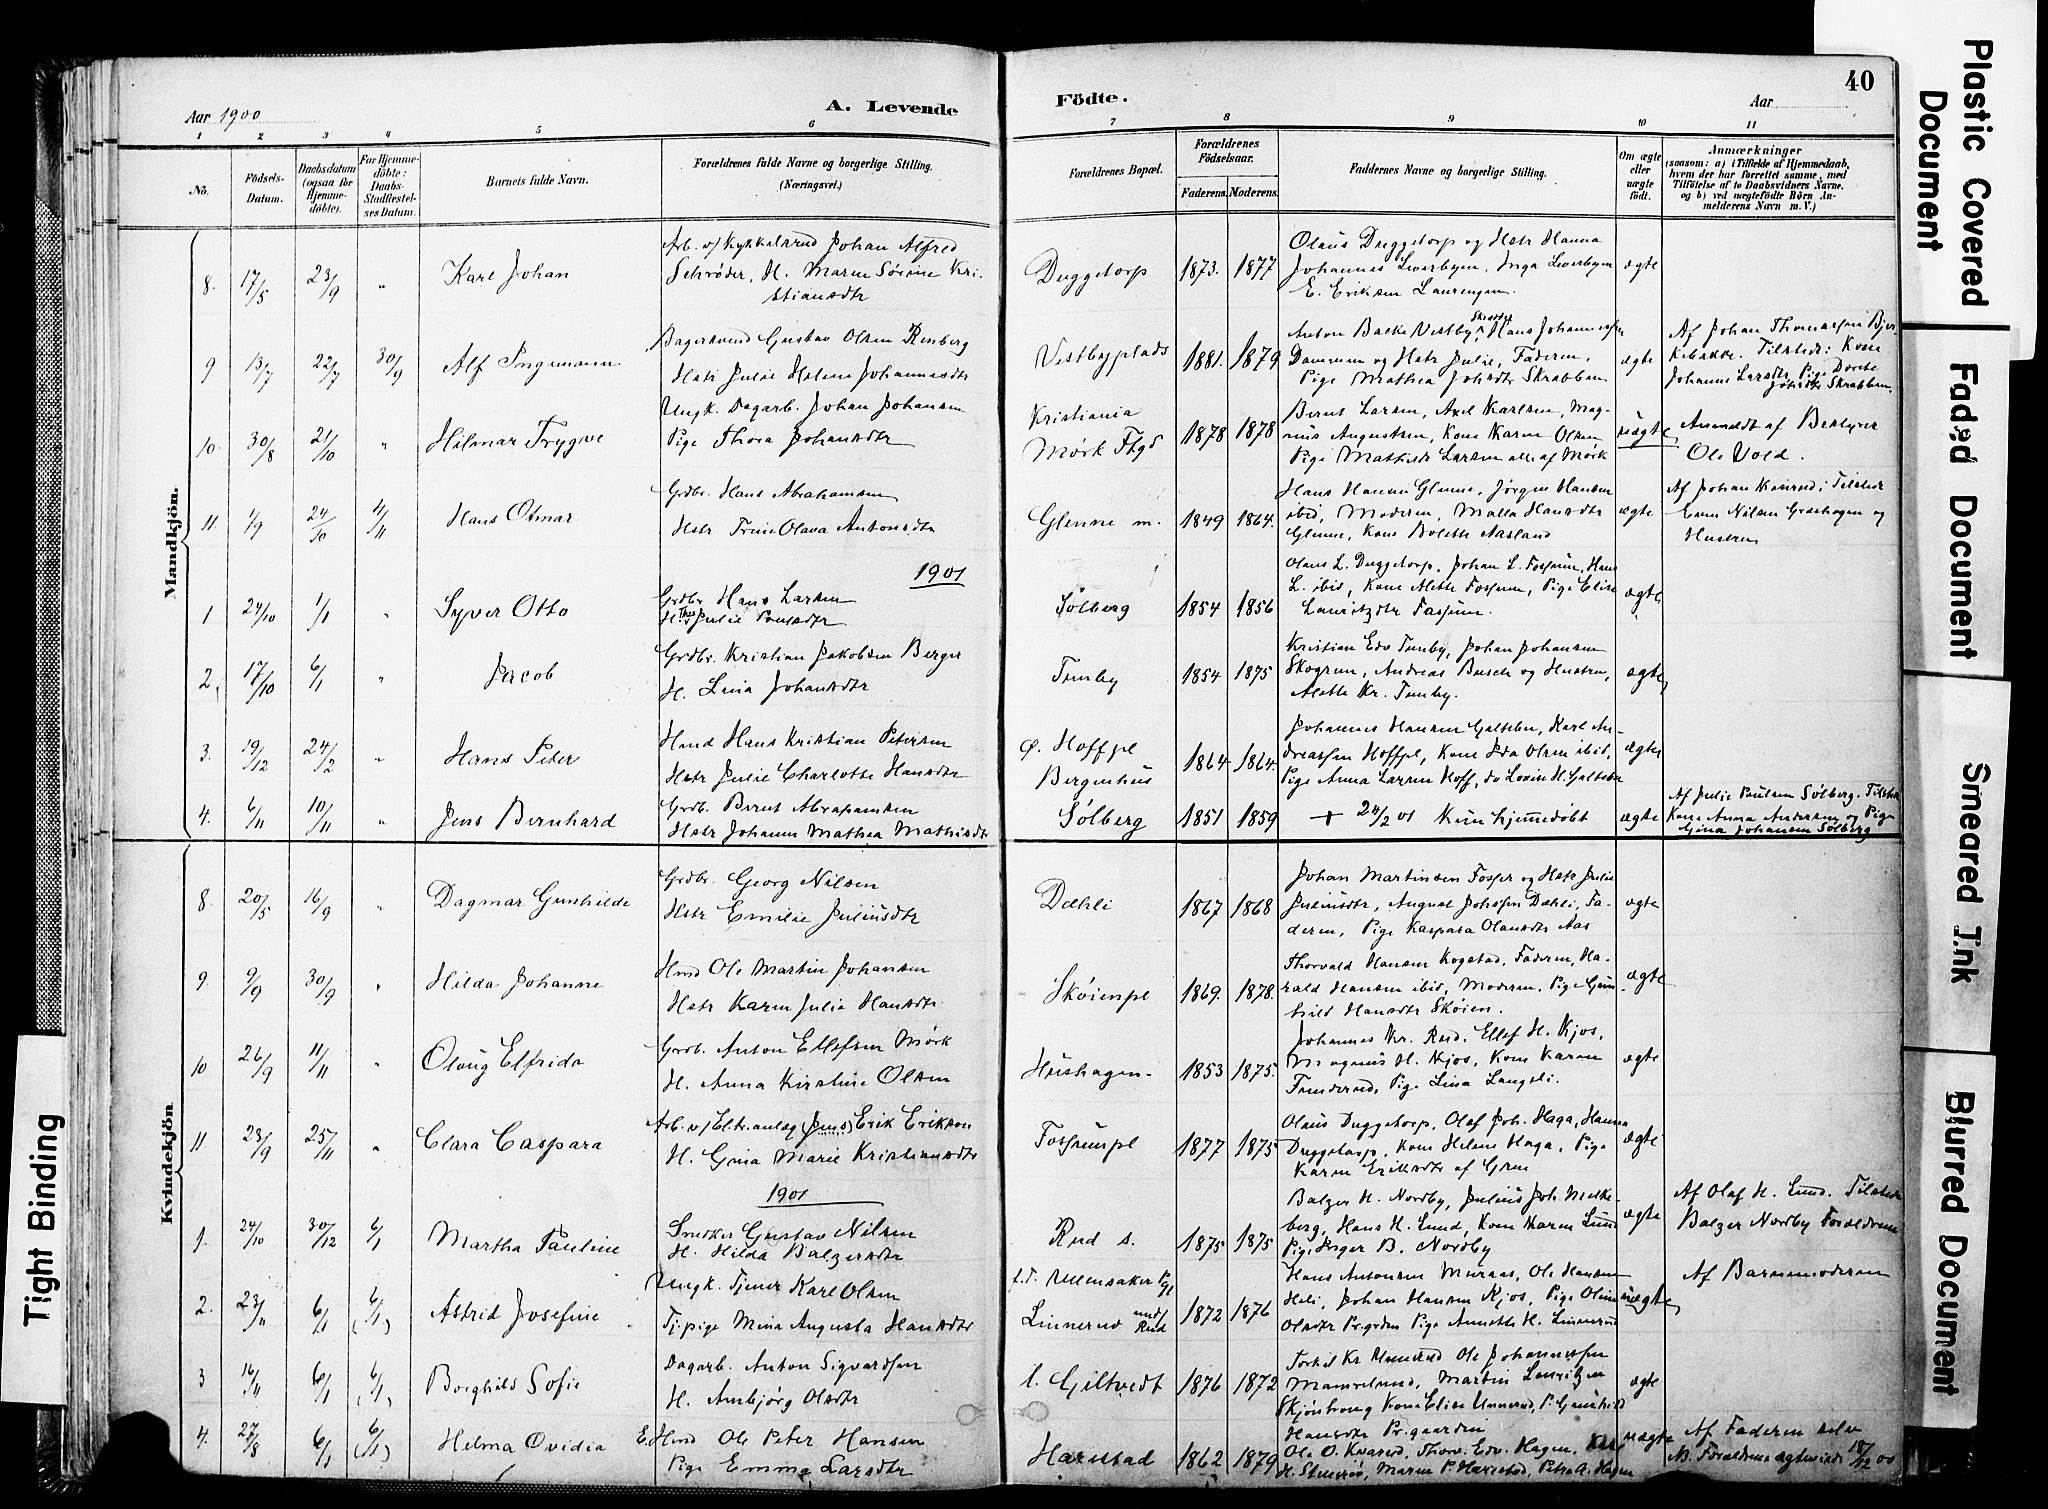 40
Aar 1900
A. Levende
Födte.
Aar
1 2 3 4 5 6 7 8 9 10 11
No.
Födsels-Datum.
Daabsdatum (ogsaa för Hjemme-döbte).
For Hjemme-döbte: Daabs-Stadfestel-ses Datum.
Barnets fulde Navn.
Forældrenes fulde Navne og borgerlige Stilling. (Næringsvei.)
Forældrenes Bopæl.
Forældrenes Födselsaar.
Faderens. Moderens.
Faddernes Navne og borgerlige Stilling.
Om ægte eller uægte födt.
Anmærkninger
(saasom: a) i Tilfælde af Hjemmedaab, hvem der har forrettet samme, med Tilföielse af to Daabsvidners Navne, og b) ved uægtefödte Börn An-melderens Navn m. V.)
Mandkjön.
8. 17/5 23/9 " Karl Johan
Arb. v/ Kykkelsrud Johan Alfred
Schrøder, H. Maren Sørine Kri-
stiansdtr
Duggetorp 1873. 1877
Olaus Duggetorp og Hstr Hanna
Johannes Liverbyen, Inga Liverbyen
E. Eriksen Laurengen.
ægte
9 13/7 22/7 30/9 Alf Ingemann
Bagersvend Gustav Olsen Renberg
Hstr Julie Helene Johannesdtr
Vestbyplads 1881. 1879
Anton Bakke Vestby, Skrædder Hans Johannessen
Damrum og Hstr Julie, Faderen,
Pige Mathea Johsdtr Skrabben
ægte
Af Johan Thomassen Bjer-
kebakke. Tilstede: Kone
Johanne Larsdtr, Pige Dorthe
Johsdtr Skrabben.
10. 30/8 21/10 " Hilmar Trygve
Ungk. Dagarb. Johan Johansen
Pige Thora Johansdtr
Kristiania
Mørk Fbgd 1878 1878
Bernt Larsen, Axel Karlsen, Mag-
nus Augustsen, Kone Karen Olsen
Pige Mathilde Larsen alle af Mørk
uægte
Anmeldt af Bestyrer
Ole Vold.
11. 1/9 24/10 4/11 Hans Otmar
Grdbr. Hans Abrahamsen
Hstr Trine Olava Antonsdtr
Glenne m. 1849 1864.
Hans Hansen Glenne, Jørgen Hansen
ibid, Moderen, Malla Hansdtr
Glenne, Kone Bolette Aasland
ægte
Af Johan Knærud; Tilstede
Even Nilsen Græshagen og
Hustru
1901
1 24/10 1/1 " Syver Otto
Grdbr Hans Larsen
H. Thea Julie Poulsdtr
Sølberg 1854 1856
Olaus L. Duggetorp, Johan L. Fossum, Hans
L. ibid, Kone Alette Fossum, Pige Elise
Lauritzdtr Fossum.
ægte
2. 17/10 6/1 " Jacob
Grdbr. Kristian Jakobsen Berger
H. Lina Johansdtr
Tomby 1854 1875
Kristian Edv Tomby, Johan Johansen
Skogrun, Andreas Busch og Hustru,
Alette Kr. Tomby.
ægte
3. 19/12 24/2 " Hans Peter
Hmd Hans Kristian Petersen
Hstr Julie Charlotte Hansdtr
Ø. Hoffpl
Bergenhus 1864 1864.
Johannes Hansen Galteben, Karl An-
dreassen Hoffpl, Kone Ida Olsen ibid,
Pige Anna Larsen Hoff, do Lovin H. Galteben
ægte
4. 6/11 10/11 " Jens Bernhard
Grdb. Bernt Abrahamsen
Hstr Johanne Mathea Mathisdtr
Sølberg 1851 1859
+ 24/2 01 Kun hjemmedøbt
ægte
Af Julie Paulsen Sølberg. Tilstede
Kone Anna Andersen og Pige
Gina Johansen Sølberg
Kvindekjön
8. 20/5 16/9 " Dagmar Gunhilde
Grdbr. Georg Nilsen
Hstr Emilie Juliusdtr
Dæhli 1867 1868
Johan Martinsen Fosser og Hstr Julie
Juliusdtr, August Johssen Dæhli, Fa-
deren, Pige Kaspara Olausdtr Aas
ægte
9. 9/9 30/9 " Hilda Johanne
Hmd Ole Martin Johansen
Hstr Karen Julie Hansdtr
Skøienpl 1869. 1878.
Thorvald Hansen Kogstad, Faderen, Ha-
rald Hansen ibid, Moderen, Pige Gun-
hild Hansdtr Skøien.
ægte
10 26/9 11/11 " Olaug Elfrida
Grdb. Anton Ellefsen Mørk
H. Anna Kirstine Olsen
Hushagen 1853 1875.
Johannes Kr. Rud, Ellef H. Kjos,
Magnus H. Kjos, Kone Karen
Tunderud, Pige Lina Langeli.
ægte
11 23/9 25/11 " Clara Caspara
Arb. v/ Eltr.anlæg (Jens) Erik Eriksen
H. Gina Marie Kristiansdtr
Fossumpl 1877 1875
Olaus Duggetorp, Olaf Joh. Haga, Hanna
Duggetorp, Kone Helene Haga, Pige
Karen Eriksdtr af Gren
ægte
1901
1. 24/10 30/12 6/1 Martha Pauline
Snedker Gustav Nilsen
H. Hilda Balzersdtr
Rud s. 1875 1875
Balzer H. Nordby, Julius Joh. Melle-
berg, Hans H. Lund, Kone Karen Lund
Pige Inger B. Nordby
ægte
Af Olaf H. Lund. Tilstede
Balzer Nordby Forældrene
2. 23/11 6/1 6/1 Astrid Josefine
Ungk. Tjener Karl Olsen
Tj.pige Mina Augusta Hansdtr
f. T. Ullensaker Pgl
Linnerud und/ Rud 1872 1876
Hans Antonsen Muraas, Ole Hansen
Heli, Johan Hansen Kjos, Pige Oline
Olsdtr Pr.grden Pige Annette H. Linnerud
uægte
Af Barnemoderen
3 16/11 6/1 6/1 Borghild Sofie
Dagarb. Anton Sigvardsen
H. Ambjørg Olsdtr
l. Giltvedt 1876 1872
Torkil Kr Unnerud Ole Johannessen
Mamrelund, Martin Lauritzen
Skjønhaug Kone Elise Unnerud, P. Gunhild
Hansdtr Pr.gaarden
ægte
4. 27/8 6/1 6/1 Helma Ovidia
E. Hmd Ole Peter Hansen
Pige Emma Larsdtr
Harestad 1862 1879
Ole O. Knærud, Thorv. Edv. Hagen, Karl
H. Stenerød, Maren P. Harestad, Petra A. Hagen
uægte
Af Faderen selv
NB. Forældrene ægteviede 18/12 00
Plastic Covered Document
Faded Document
Smeared Ink
Blurred Document
Tight Binding